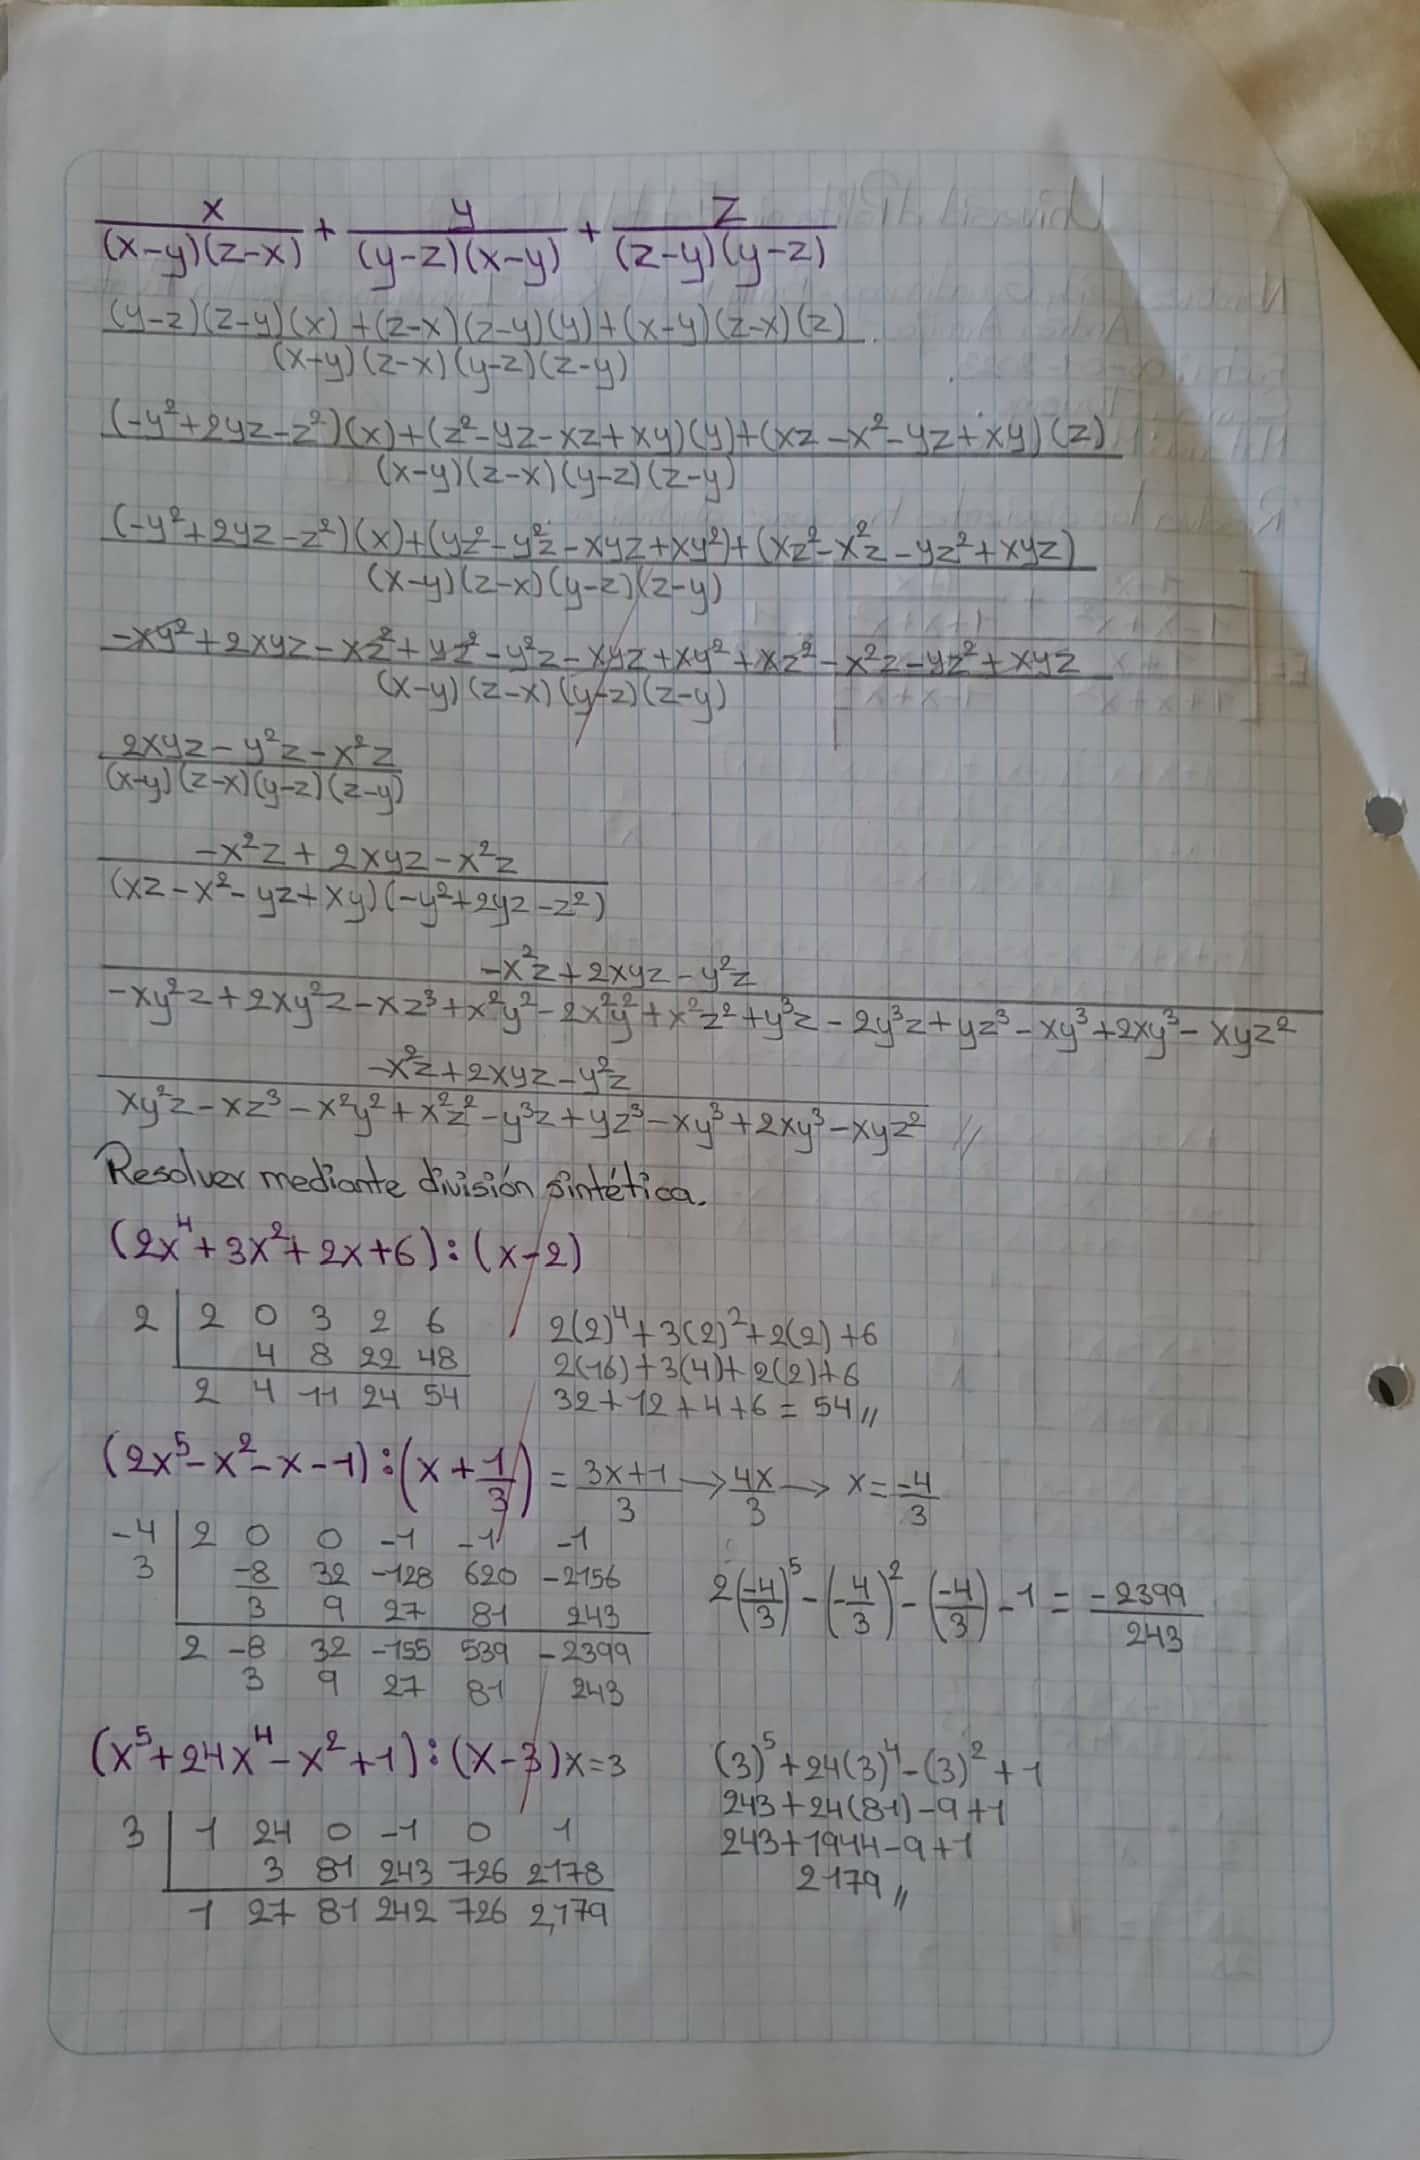 x/((x-y)(z-x)) + y/((y-z)(x-y)) + z/((z-y)(y-z))
((y-z)(z-y)(x)+(z-x)(z-y)(y)+(x-y)(z-x)(z))/((x-y)(z-x)(y-z)(z-y))
((-y²+2yz-z²)(x)+(z²-yz-xz+xy)(y)+(xz-x²-yz+xy)(z))/((x-y)(z-x)(y-z)(z-y))
((-y²+2yz-z²)(x)+(yz²-y²z-xyz+xy²)+(xz²-x²z-yz²+xyz))/((x-y)(z-x)(y-z)(z-y))
(-xy²+2xyz-xz²+yz²-y²z-xyz+xy²+xz²-x²z-yz²+xyz)/((x-y)(z-x)(y-z)(z-y))
(2xyz-y²z-x²z)/((x-y)(z-x)(y-z)(z-y))
(-x²z+2xyz-x²z)/((xz-x²-yz+xy)(-y²+2yz-z²))
(-x²z+2xyz-y²z)/(-xy²z+2xy²z-xz³+x²y²-2x²y²+x²z²+y³z-2y³z+yz³-xy³+2xy³-xyz²)
(-x²z+2xyz-y²z)/(xy²z-xz³-x²y²+x²z²-y³z+yz³-xy³+2xy³-xyz²) //
Resolver mediante división sintética.
(2x⁴+3x²+2x+6):(x-2)
2 | 2 0 3 2 6
4 8 22 48
2 4 11 24 54
2(2)⁴+3(2)²+2(2)+6
2(16)+3(4)+2(2)+6
32+12+4+6=54//
(2x⁵-x²-x-1):(x+1/3) = (3x+1)/3 → 4x/3 → x=-4/3
-4 | 2 0 0 -1 -1 -1
3 -8 32 -128 620 -2156
3 9 27 81 243
2 -8 32 -155 539 -2399
3 9 27 81 243
2(-4/3)⁵-(-4/3)²-(-4/3)-1 = -2399/243
(x⁵+24x⁴-x²+1):(x-3) x=3
3 | 1 24 0 -1 0 1
3 81 243 726 2178
1 27 81 242 726 2,179
(3)⁵+24(3)⁴-(3)²+1
243+24(81)-9+1
243+1944-9+1
2179//